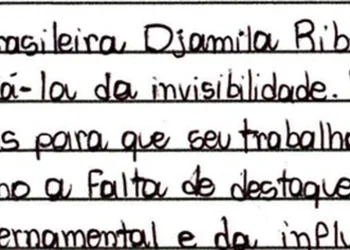 rasileira Djamila Rib
á-la da invisibilidade.
s para que seu trabalho
no a falta de destaque
ernamental e da influ